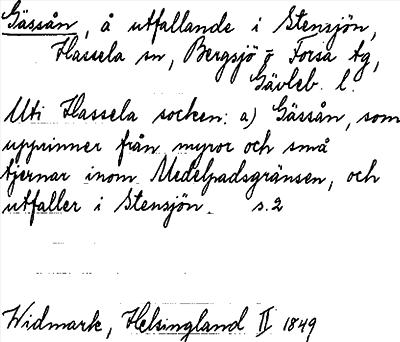 Gässån, å utfallande i Stensjön,
Hassela sn, Bergsjö o Forsa tg,
Gävleb. l.
Uti Hassela socken: a) Gässån, som
upprinner från myror och små
tjernar inom Medelpadsgränsen, och
utfaller i Stensjön. s. 2
Widmark, Helsingland II 1849